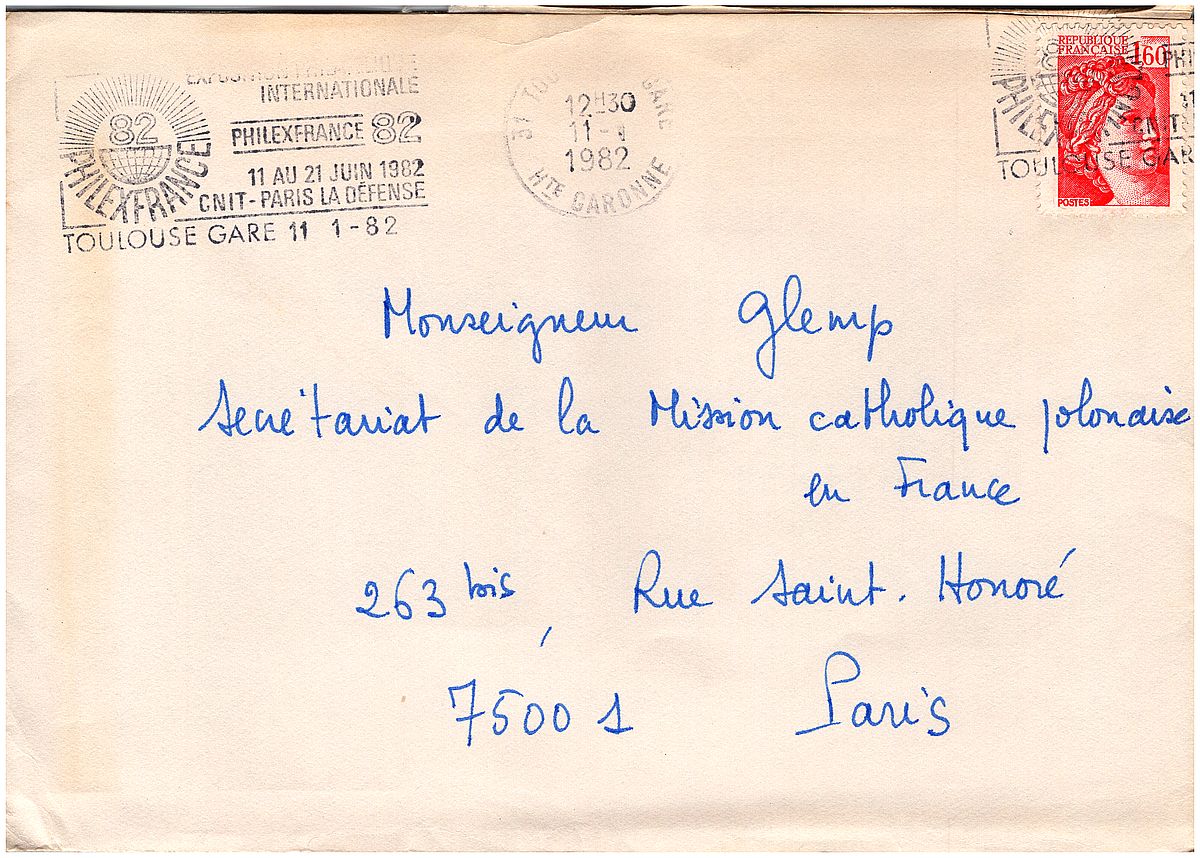 EXPOSITION PHILATELIQUE
INTERNATIONALE
82
PHILEXFRANCE
PHILEXFRANCE 82
11 AU 21 JUIN 1982
CNIT-PARIS LA DÉFENSE
TOULOUSE GARE 11 1-82
GARE
12H30
11-1
1982
HTE GARONNE
REPUBLIQUE
FRANÇAISE
1,60
POSTES
CNIT
TOULOUSE GAR
Monseigneur Glemp
Secrétariat de la Mission catholique polonaise
en France
263 bis, Rue Saint-Honoré
75001 Paris